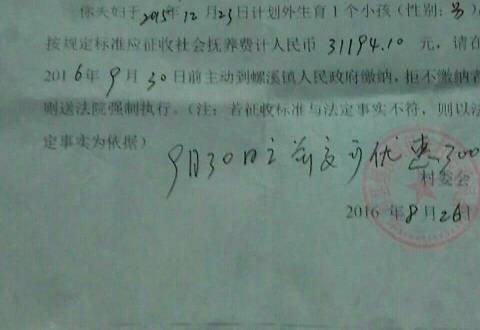 你夫妇于2015年12月23日计划外生育1个小孩(性别:男)
按规定标准应征收社会抚养费计人民币 31194.10 元,请在
2016年9月30日前主动到螺溪镇人民政府缴纳,拒不缴纳者
则送法院强制执行。(注:若征收标准与法定事实不符,则以法
定事实为依据)
9月30日之前交可优惠300
村委会
2016 年8月26日